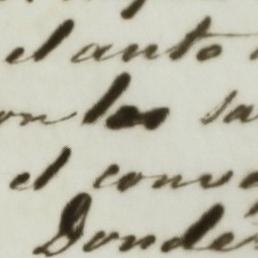 el auto
on los sa
el conve
Donde